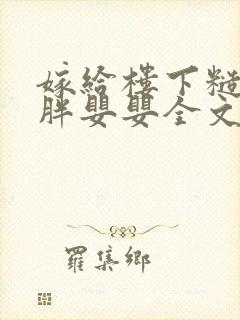 嫁給樓下糙
胖嬰嬰全文
羅集鄉